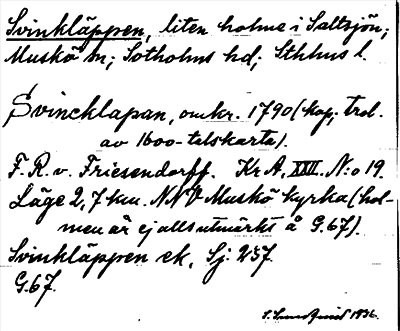 Svinkläppen, liten holme i Saltsjön;
Muskö sn; Sotholms hd; Sthlms l.
Svincklapan, omkr. 1790 (kop; trol.
av 1600-talskarta).
F. R. v. Friesendorff. Kr A. XXIII. N:o 19.
Läge 2,7 km. NNV Muskö kyrka (hol-
men är ej alls utmärkt å G. 67).
Svinkläppen ek. Sj. 257.
G.67.
1936.